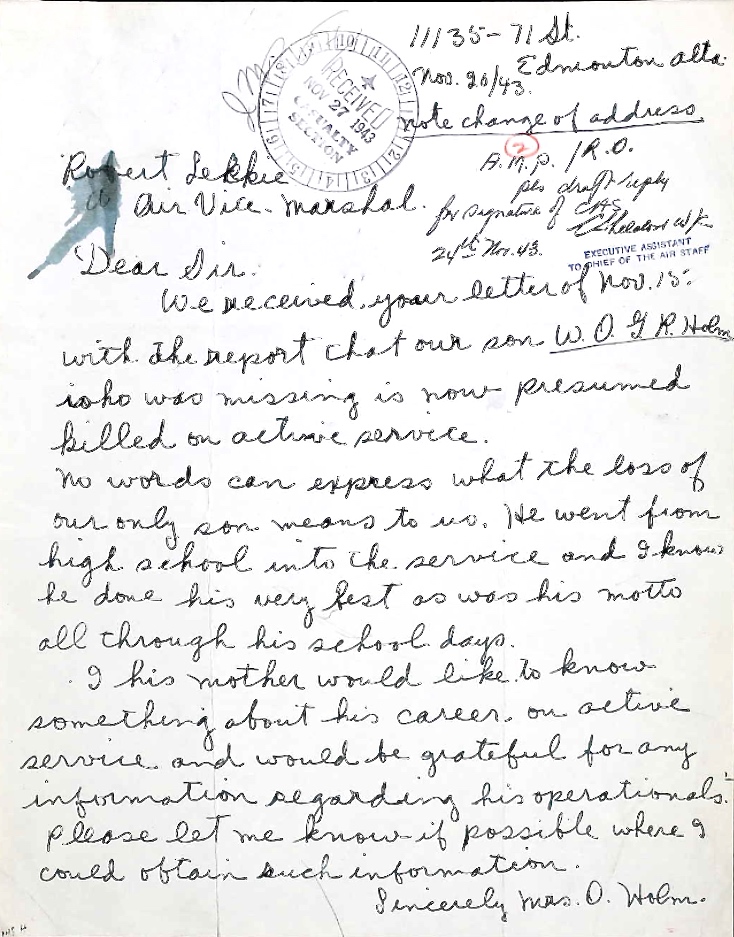 11135-71 St.
Edmonton Alta.
Nov. 20/43.
note change of address
RECEIVED
NOV 27 1943
CASUALTY
SECTION
2
A.M.P. / R.O.
pls draft reply
for signature of CAS
24th Nov. 43.
EXECUTIVE ASSISTANT
TO CHIEF OF THE AIR STAFF
Robert Lekkie
Air Vice-Marshal.
Dear Sir.
We received your letter of Nov. 15.
with the report that our son W.O. G R. Holm
who was missing is now presumed
killed on active service.
No words can express what the loss of
our only son means to us. He went from
high school into the service and I know
he done his very best as was his motto
all through his school days.
I his mother would like to know
something about his career on active
service and would be grateful for any
information regarding his operationals.
Please let me know if possible where I
could obtain such information.
Sincerely Mrs. O. Holm.